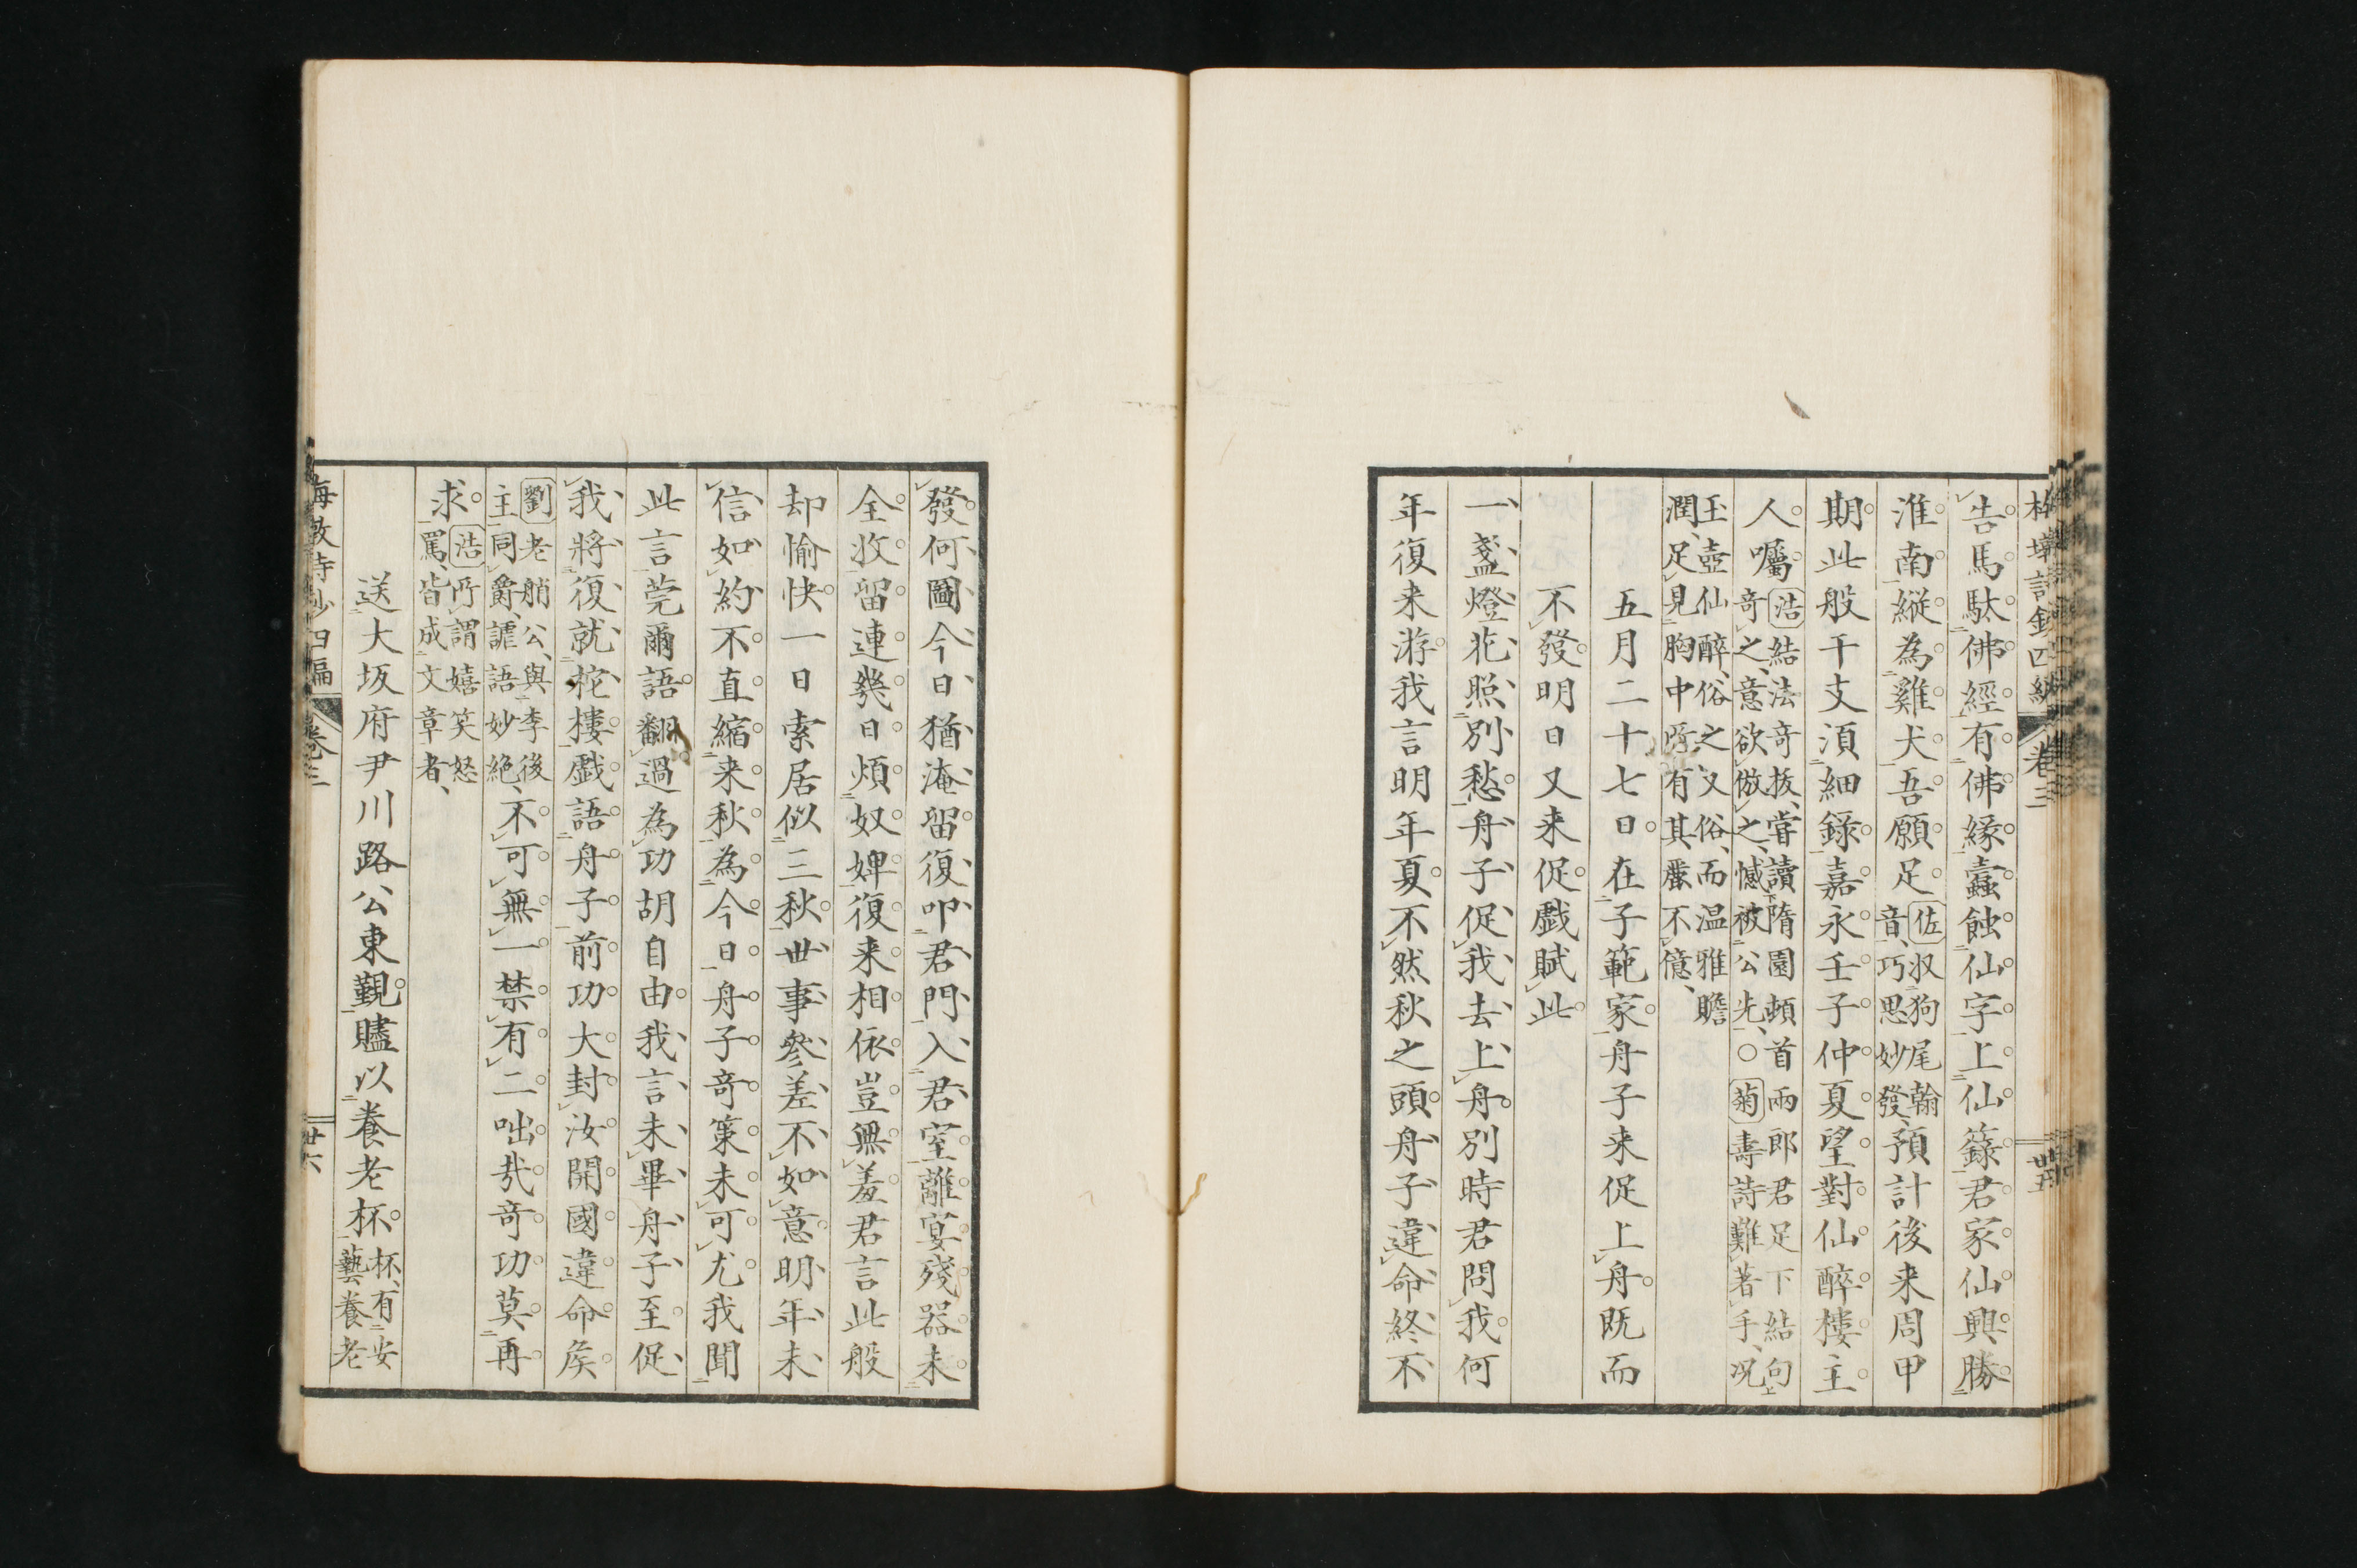 告馬駄佛經有佛緣蠧蝕仙字上仙籙君家仙興勝
淮南縦為雞犬吾願足
佐収狗尾翰
音巧思妙發預計後来周甲
期此般干支湏細錄嘉永壬子仲夏望對仙醉樓主
人囑
浩結法奇抜嘗讀隋園頓首兩郎君足下結句
奇之意欲倣之憾被公先○菊壽詩難著手况
玉壺仙醉俗之又俗而温雅贍
潤足見胸中所有其麗不億
五月二十七日在子範家舟子来促上舟既而
不發明日又来促戲賦此
一盞燈花照別愁舟子促我去上舟別時君問我何
年復来游我言明年夏不然秋之頭舟子違命終不
發何圖今日猶淹留復叩君門入君室離宴殘器未
全收留連幾日煩奴婢復来相依豈無羞君言此般
却愉快一日索居似三秋世事參差不如意明年未
信如約不直縮来秋為今日舟子奇策未可尤我聞
此言莞爾語翻過為功胡自由我言未畢舟子至促
我將復就柁樓戲語舟子前功大封汝開國違命侯
劉老艄公與李後
主同爵謔語妙絶不可無一禁有二咄哉奇功莫再
求
浩所謂嬉笑怒
罵皆成文章者
送大坂府尹川路公東覲贐以養老杯
杯有安
藝養老
卷三
廿六